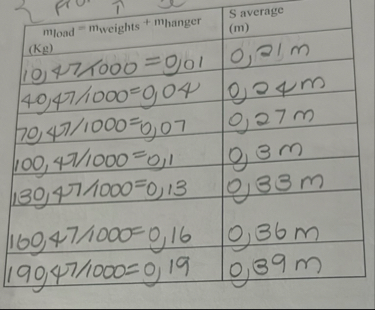 m_load = m_weights + m_hanger (Kg) S average (m)
10,47/1000 = 0,01 0,21 m
40,47/1000=0,04 0,24 m
70,47/1000=0,07 0,27 m
100,47/1000=0,1 0,3 m
130,47/1000=0,13 0,33 m
160,47/1000=0,16 0,36 m
190,47/1000=0,19 0,39 m